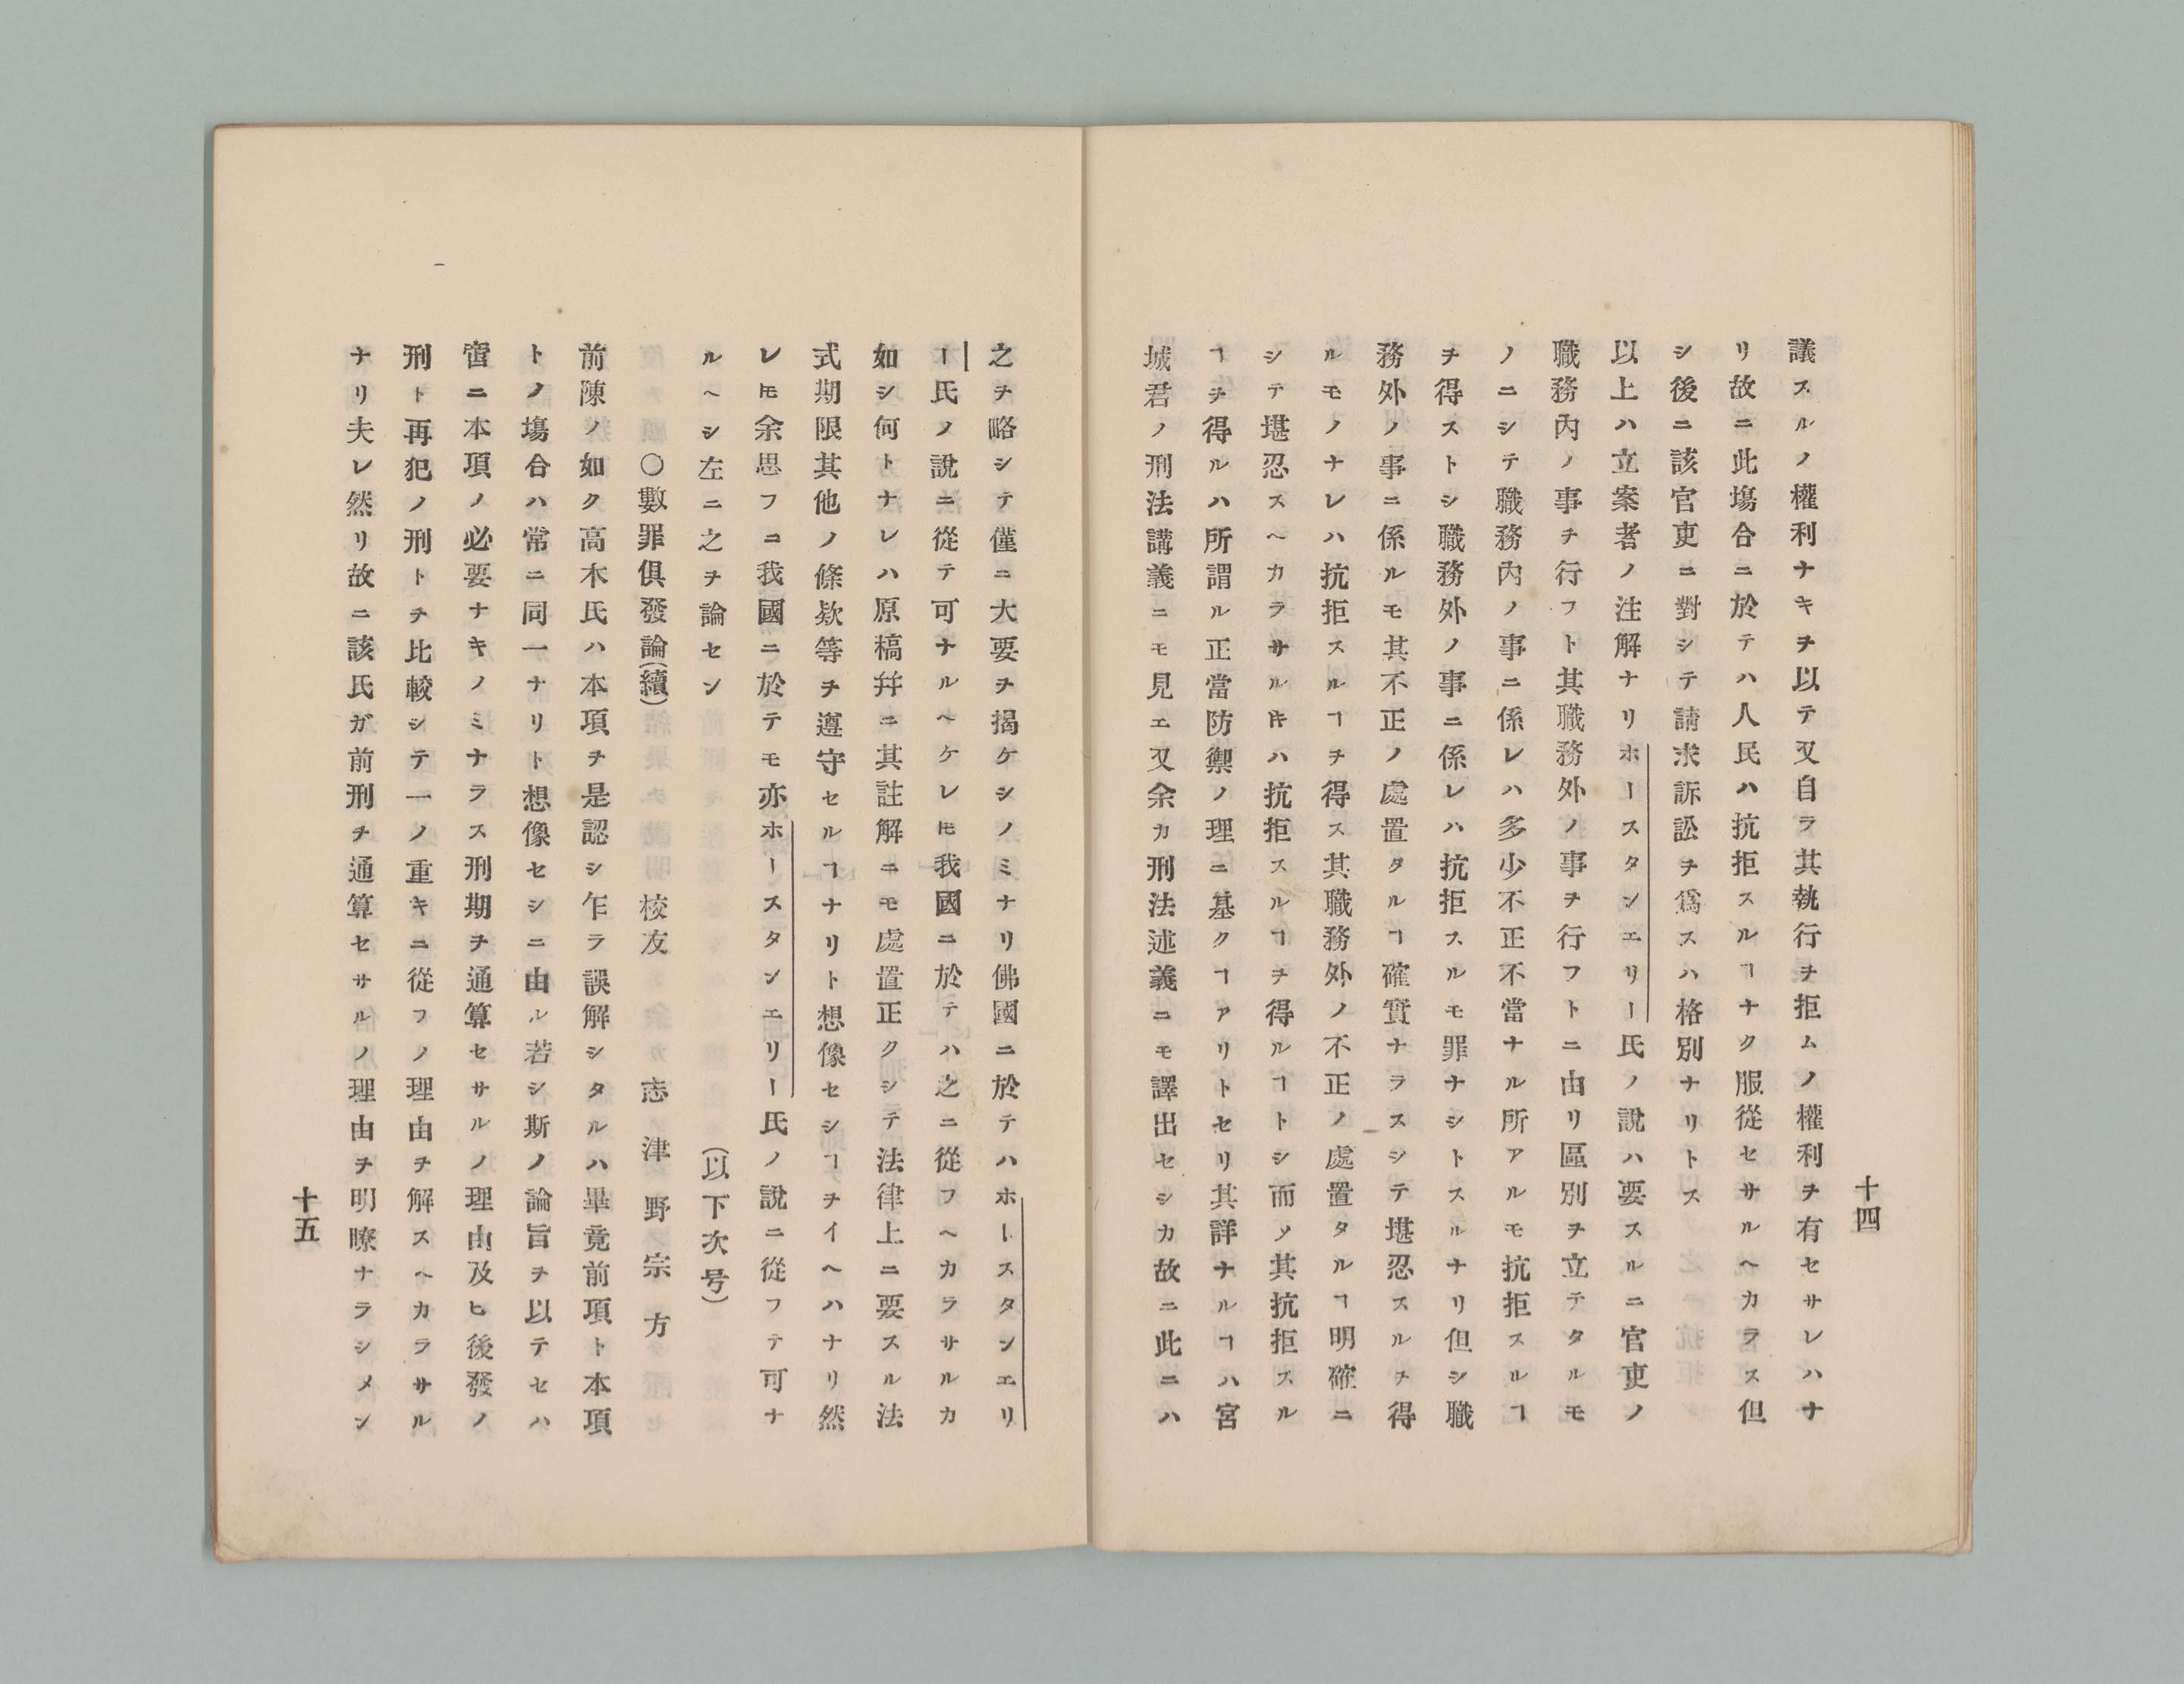 十四
議スルノ權利ナキヲ以テ又自ラ其執行ヲ拒ムノ權利ヲ有セサレハナ
リ故ニ此塲合ニ於テハ人民ハ抗拒スルヿナク服從セサルヘカラス但
シ後ニ該官吏ニ對シテ請求訴訟ヲ爲スハ格別ナリトス
以上ハ立案者ノ注解ナリホースタンエリー氏ノ說ハ要スルニ官吏ノ
職務內ノ事ヲ行フト其職務外ノ事ヲ行フトニ由リ區別ヲ立テタルモ
ノニシテ職務內ノ事ニ係レハ多少不正不當ナル所アルモ抗拒スルヿ
ヲ得ストシ職務外ノ事ニ係レハ抗拒スルモ罪ナシトスルナリ但シ職
務外ノ事ニ係ルモ其不正ノ處置タルヿ確實ナラスシテ堪忍スルヲ得
ルモノナレハ抗拒スルヿヲ得ス其職務外ノ不正ノ處置タルヿ明確ニ
シテ堪忍スヘカラサルキハ抗拒スルヿヲ得ルヿトシ而メ其抗拒スル
ヿヲ得ルハ所謂ル正當防禦ノ理ニ基クヿアリトセリ其詳ナルヿハ宮
城君ノ刑法講義ニモ見エ又余カ刑法述義ニモ譯出セシカ故ニ此ニハ
之ヲ略シテ僅ニ大要ヲ揭ケシノミナリ佛國ニ於テハホースタンエリ
ー氏ノ說ニ從テ可ナルヘケレ𪜈我國ニ於テハ之ニ從フヘカラサルカ
如シ何トナレハ原稿幷ニ其註解ニモ處置正クシテ法律上ニ要スル法
式期限其他ノ條欵等ヲ遵守セルヿナリト想像セシヿヲイヘハナリ然
レ𪜈余思フニ我國ニ於テモ亦ホースタンエリー氏ノ說ニ從フテ可ナ
ルヘシ左ニ之ヲ論セン
(以下次号)
〇數罪俱發論(續)
校友 志津野宗方
前陳ノ如ク高木氏ハ本項ヲ是認シ乍ラ誤解シタルハ畢竟前項ト本項
トノ塲合ハ常ニ同一ナリト想像セシニ由ル若シ斯ノ論旨ヲ以テセハ
啻ニ本項ノ必要ナキノミナラス刑期ヲ通算セサルノ理由及ヒ後發ノ
刑ト再犯ノ刑トヲ比較シテ一ノ重キニ從フノ理由ヲ解スヘカラサル
ナリ夫レ然リ故ニ該氏ガ前刑ヲ通算セサルノ理由ヲ明瞭ナラシメン
十五